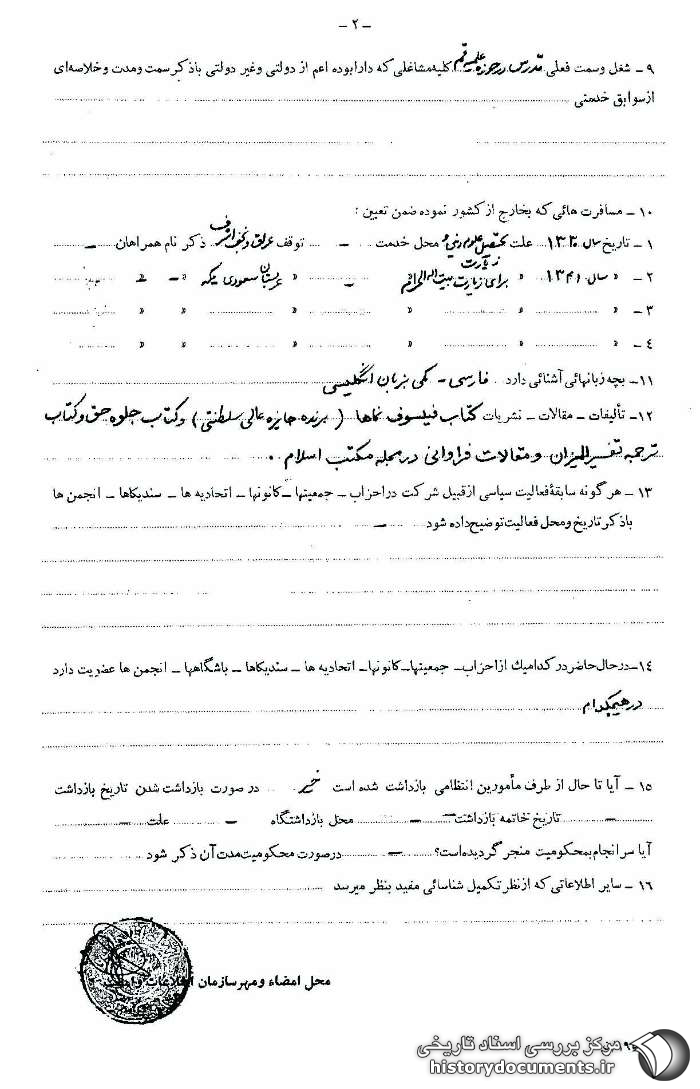 - ۲ -
۹ - شغل وسمت فعلی مدرس در حوزه علمیه قم کلیه مشاغلی که دارا بوده اعم از دولتی وغیر دولتی باذکر سمت ومدت وخلاصه‌ای
از سوابق خدمتی
۱۰ - مسافرت هائی که بخارج از کشور نموده ضمن تعیین :
۱ - تاریخ سال ۱۳۲۰ علت تحصیل علوم دینی و زیارت محل خدمت - توقف عراق و نجف اشرف ذکر نام همراهان -
۲ - « سال ۱۳۴۱ « برای زیارت بیت الله الحرام « - « عربستان سعودی مکه « -
۳ - « « « « « «
۴ - « « « « « «
۱۱ - بچه زبانهائی آشنائی دارد فارسی - کمی بزبان انگلیسی
۱۲ - تألیفات - مقالات - نشریات کتاب فیلسوف نماها ( برنده جایزه عالی سلطنتی ) و کتاب جلوه حق و کتاب
ترجمه تفسیر المیزان و مقالات فراوانی در مجله مکتب اسلام .
۱۳ - هر گونه سابقۀ فعالیت سیاسی از قبیل شرکت در احزاب - جمعیتها - کانونها - اتحادیه ها - سندیکاها - انجمن ها
باذکر تاریخ ومحل فعالیت توضیح داده شود -
۱۴ - در حال حاضر در کدامیك از احزاب - جمعیتها - کانونها - اتحادیه ها - سندیکاها - باشگاهها - انجمن ها عضویت دارد
در هیچکدام
۱۵ - آیا تا حال از طرف مأمورین انتظامی بازداشت شده است خیر در صورت بازداشت شدن تاریخ بازداشت
- تاریخ خاتمه بازداشت - محل بازداشتگاه - علت -
آیا سرانجام بمحکومیت منجر گردیده است؟ - در صورت محکومیت مدت آن ذکر شود
۱۶ - سایر اطلاعاتی که از نظر تکمیل شناسائی مفید بنظر میرسد
محل امضاء ومهر سازمان اطلاعات و امنیت
مرکز بررسی اسناد تاریخی
historydocuments.ir